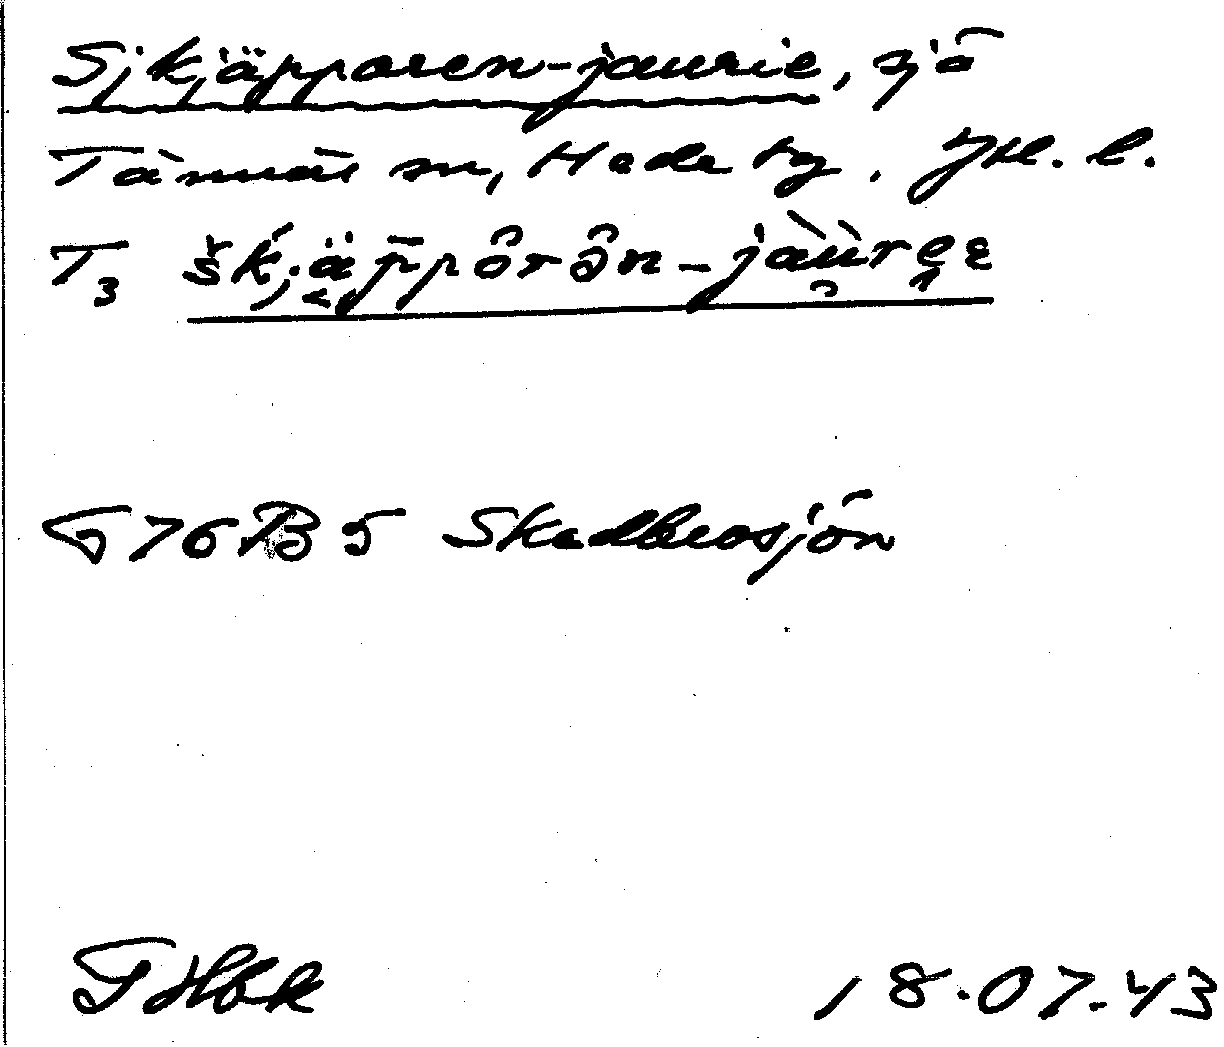 Sjkjäpparen-jaurie, sjö
Tännäs sn, Hede tg. Jtl. l.
T3 šḱjäp̄pôrôn-jàùrẹe
G 76 B 5 Skedbrosjön
THbk 18.07.43